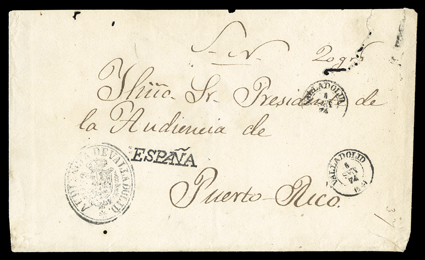 S. N. 20 grs
Yllmo. Sr. Presidente de
la Audiencia de
Puerto-Rico.
ESPAÑA
AUDIENCIA DE VALLADOLID
VALLADOLID
VALLADOLID